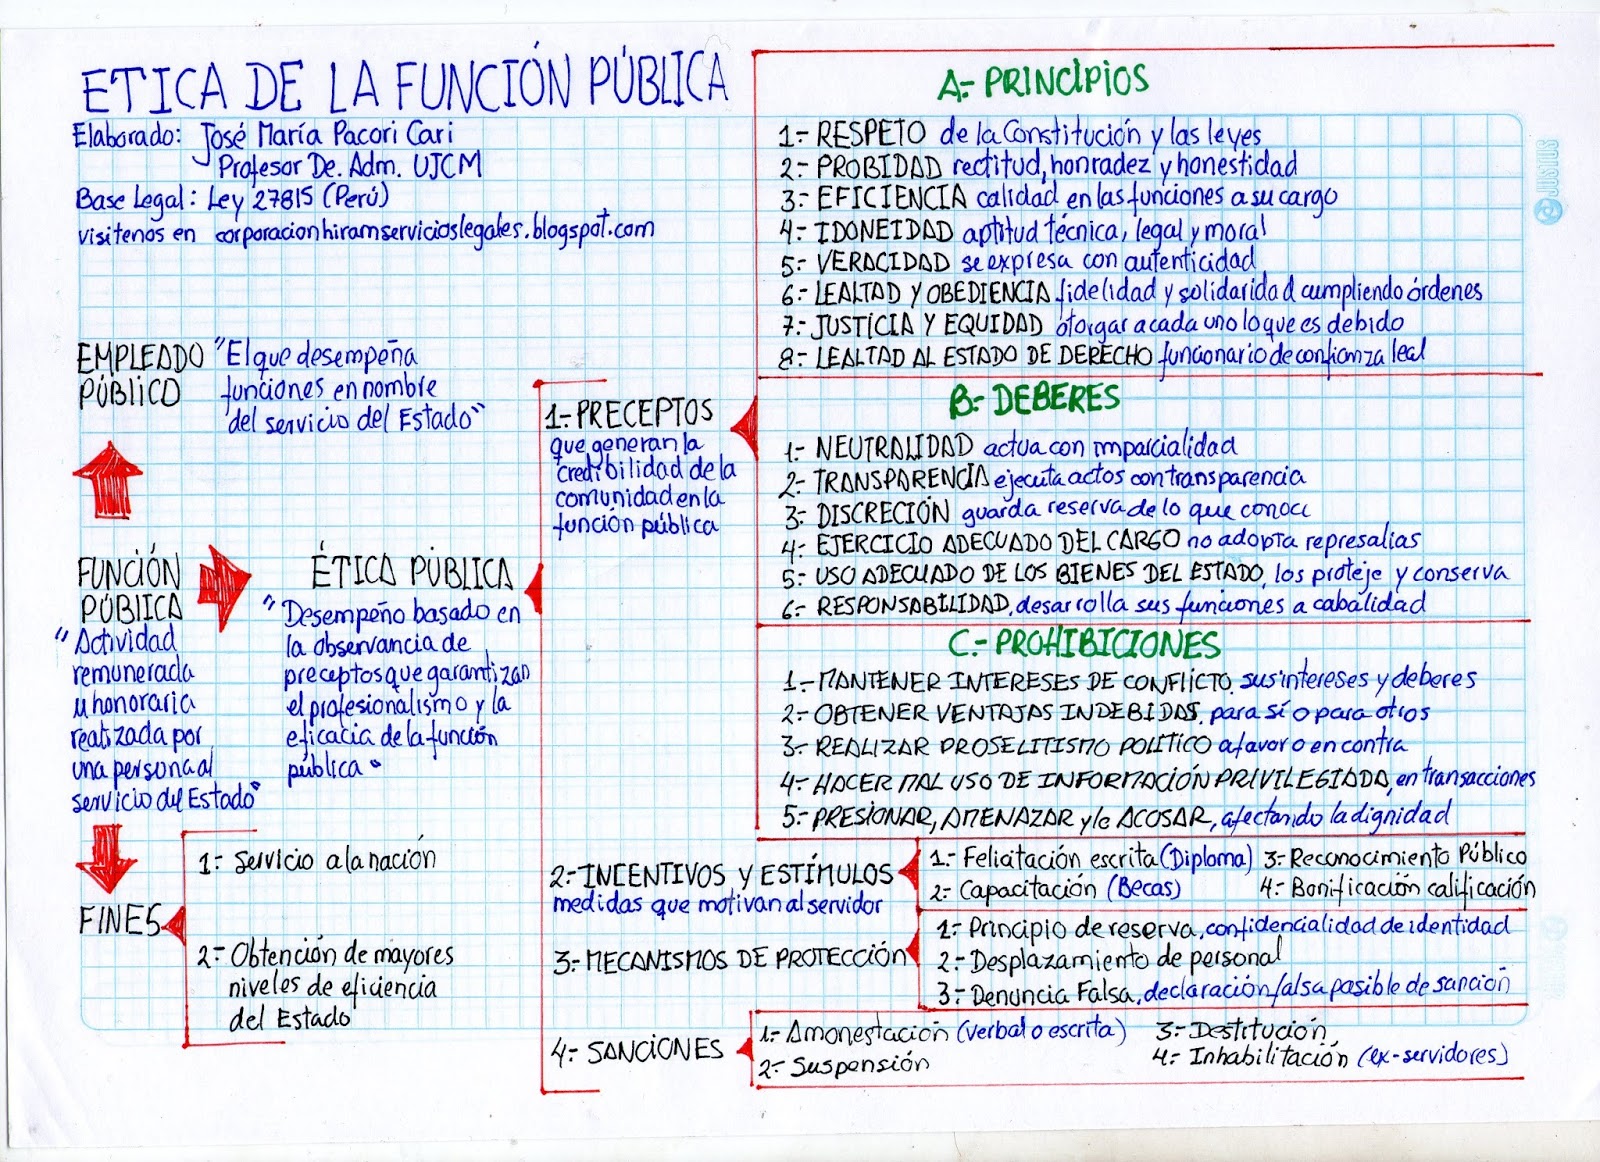 ETICA DE LA FUNCIÓN PÚBLICA
Elaborado: José María Pacori Cari
Profesor De. Adm. UJCM
Base Legal: Ley 27815 (Perú)
visitenos en corporacionhiramservicioslegales.blogspot.com
EMPLEADO PÚBLICO
"El que desempeña
funciones en nombre
del servicio del Estado"
FUNCIÓN
PÚBLICA
"Actividad
remunerada
u honoraria
realizada por
una persona al
servicio del Estado"
ÉTICA PÚBLICA
"Desempeño basado en
la observancia de
preceptos que garantizan
el profesionalismo y la
eficacia de la función
pública"
FINES
1.- Servicio a la nación
2.- Obtención de mayores
niveles de eficiencia
del Estado
1.- PRECEPTOS
que generan la
credibilidad de la
comunidad en la
función pública
A.- PRINCIPIOS
1.- RESPETO de la Constitución y las leyes
2.- PROBIDAD rectitud, honradez y honestidad
3.- EFICIENCIA calidad en las funciones a su cargo
4.- IDONEIDAD aptitud técnica, legal y moral
5.- VERACIDAD se expresa con autenticidad
6.- LEALTAD Y OBEDIENCIA fidelidad y solidaridad cumpliendo órdenes
7.- JUSTICIA Y EQUIDAD otorgar a cada uno lo que es debido
8.- LEALTAD AL ESTADO DE DERECHO funcionario de confianza leal
B.- DEBERES
1.- NEUTRALIDAD actua con imparcialidad
2.- TRANSPARENCIA ejecuta actos con transparencia
3.- DISCRECIÓN guarda reserva de lo que conoce
4.- EJERCICIO ADECUADO DEL CARGO no adopta represalias
5.- USO ADECUADO DE LOS BIENES DEL ESTADO, los proteje y conserva
6.- RESPONSABILIDAD, desarrolla sus funciones a cabalidad
C.- PROHIBICIONES
1.- MANTENER INTERESES DE CONFLICTO, sus intereses y deberes
2.- OBTENER VENTAJAS INDEBIDAS, para sí o para otros
3.- REALIZAR PROSELITISMO POLÍTICO a favor o en contra
4.- HACER MAL USO DE INFORMACIÓN PRIVILEGIADA, en transacciones
5.- PRESIONAR, AMENAZAR y/o ACOSAR, afectando la dignidad
2.- INCENTIVOS Y ESTÍMULOS
medidas que motivan al servidor
1.- Felicitación escrita (Diploma) 3.- Reconocimiento Público
2.- Capacitación (Becas) 4.- Bonificación calificación
3.- MECANISMOS DE PROTECCIÓN
1.- Principio de reserva, confidencialidad de identidad
2.- Desplazamiento de personal
3.- Denuncia Falsa, declaración falsa pasible de sanción
4.- SANCIONES
1.- Amonestación (verbal o escrita) 3.- Destitución,
2.- Suspensión 4.- Inhabilitación (ex-servidores)